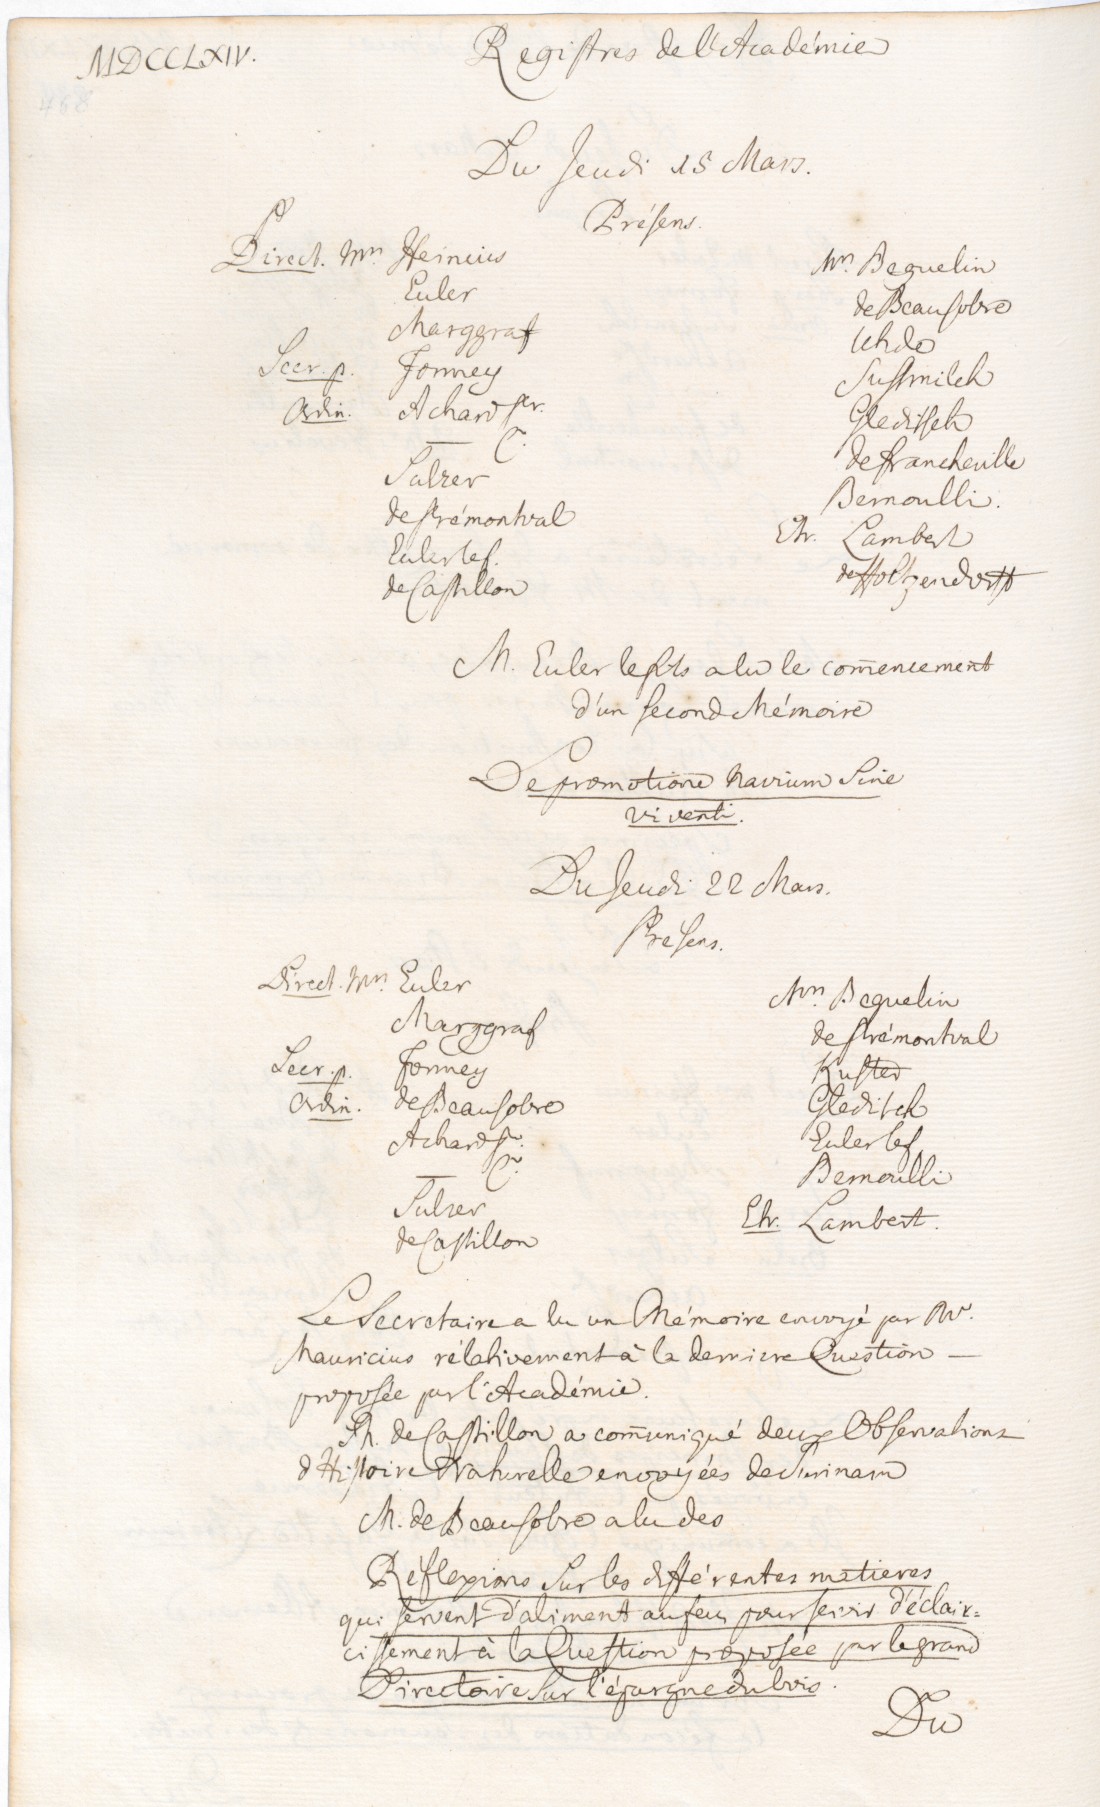 MDCCLXIV.
Registres de l'Académie
Du Jeudi 15 Mars.
Présens.
Direct. Mrs Heinius
Euler
Marggraf
Secr. p. Formey
Ordin. Achard Pr.
— C.
Sulzer
de Prémontval
Euler le f.
de Castillon
Mrs Beguelin
de Beausobre
Uhde
Susmilch
Gleditsch
de Francheville
Bernoulli.
Etr. Lambert
de Holtzendorff
M. Euler le fils a lu le comencement
d'un second Mémoire
De promotione navium sine
vi venti.
Du Jeudi 22 Mars.
Presens.
Direct. Mrs Euler
Marggraf
Secr. p. Formey
Ordin. de Beausobre
Achard Pr.
— Cr.
Sulzer
de Castillon
Mrs Beguelin
de Prémontval
Kuster
Gleditch
Euler le f.
Bernoulli
Etr. Lambert.
Le Secretaire a lu un Mémoire envoyé par Mr.
Mauricius rélativement à la derniere Question —
proposée par l'Académie.
M. de Castillon a comuniqué deux Observations
d'Histoire Naturelle envoyées de Surinam
M. de Beausobre a lu des
Réflexions sur les différentes matieres
qui servent d'aliment au feu pour servir d'éclair=
cissement à la Question proposée par le grand
Directoire sur l'épargne du bois.
Du